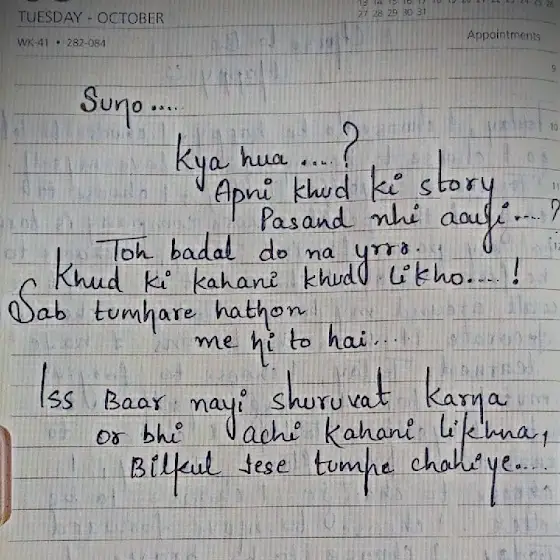 TUESDAY - OCTOBER
WK-41 • 282-084
13 14 15 16 17 18
27 28 29 30 31
Appointments
9
Suno.....
Kya hua ....?
Apni khud ki story
Pasand nhi aayi....?
Toh badal do na yrrr.
Khud ki kahani khud likho....!
Sab tumhare hathon
me hi to hai...
Iss Baar nayi shuruvat karna
or bhi achi kahani likhna,
Bilkul jese tumhe chahiye....